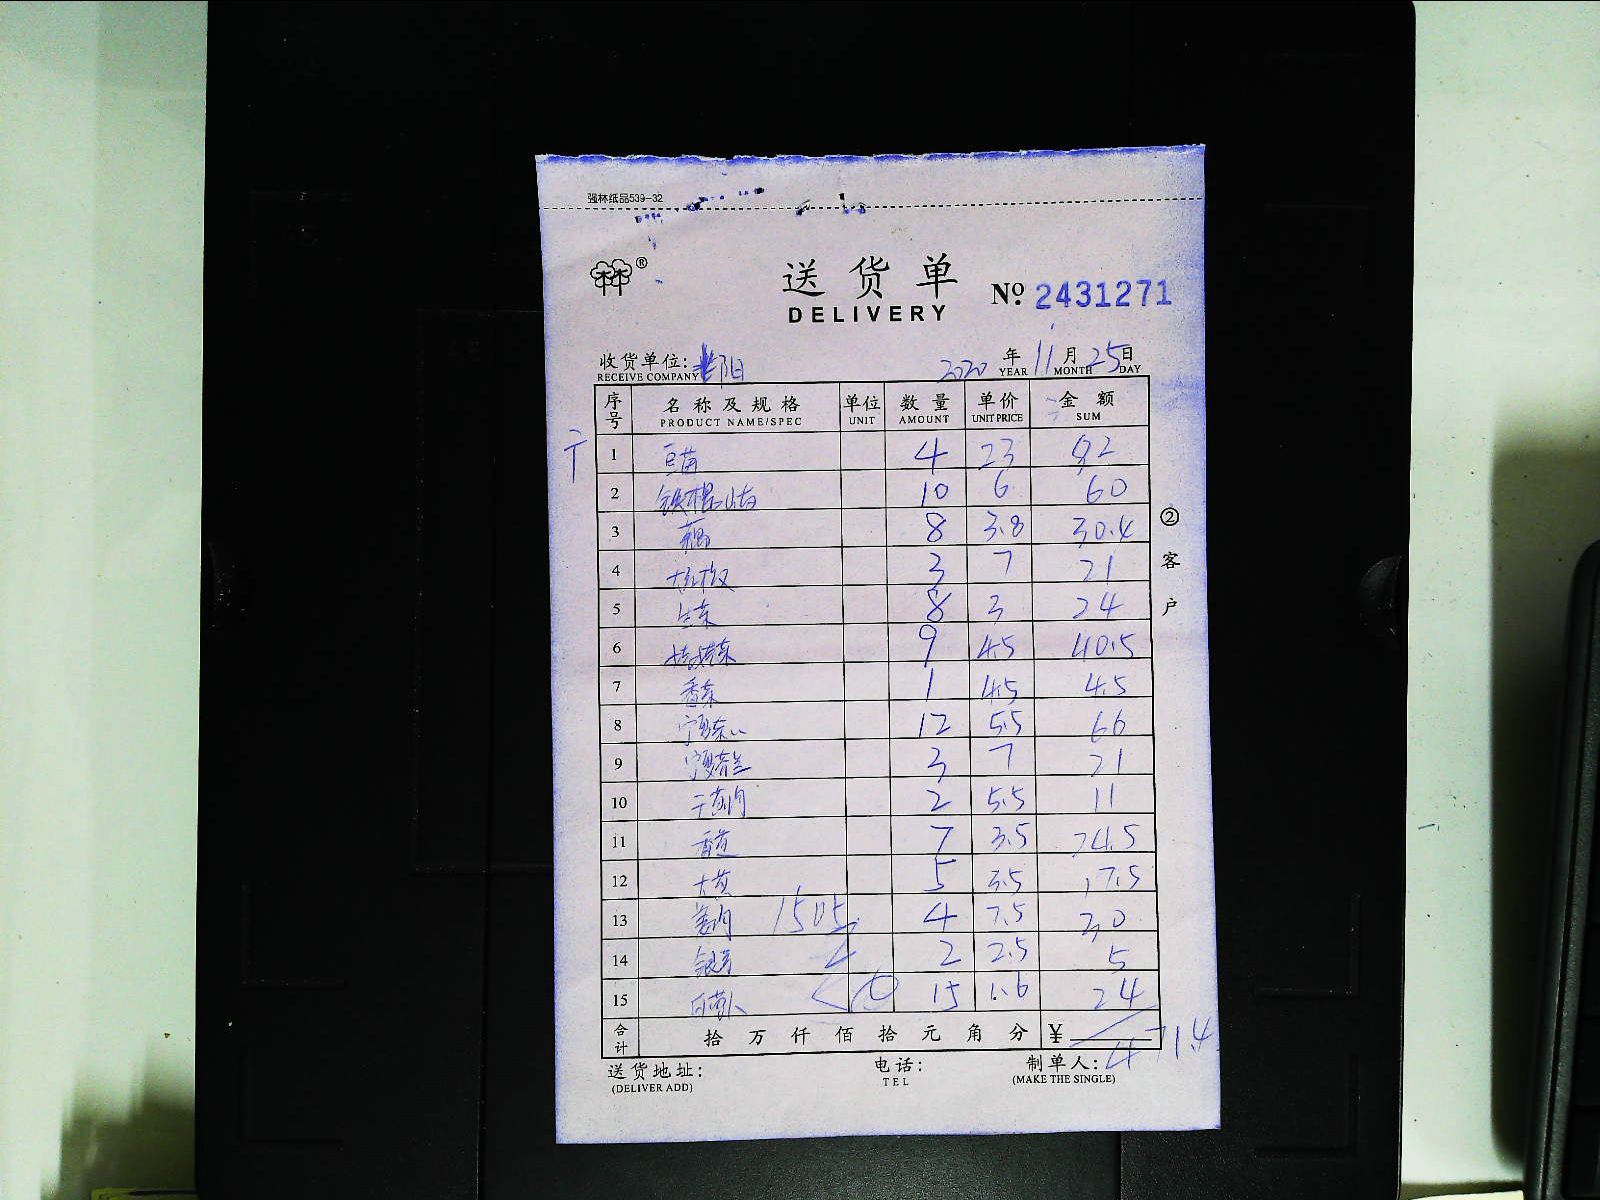 强林纸品539-32
®
送货单
DELIVERY
№ 2431271
收货单位: 阳 2020 年 11 月 25 日
RECEIVE COMPANY YEAR MONTH DAY
序号 名称及规格 单位 数量 单价 金额
PRODUCT NAME/SPEC UNIT AMOUNT UNIT PRICE SUM
1 豆苗 4 23 92
2 铁棍山右 10 6 60
3 藕 8 3.8 30.4
4 7 21
5 生菜 8 3 24
6 9 4.5 40.5
7 香菜 1 4.5 4.5
8 宁夏菜心 12 5.5 66
9 宁夏芥兰 3 7 21
10 2 5.5 11
11 7 3.5 24.5
12 大黄 5 3.5 17.5
13 姜肉 1505 4 7.5 30
14 银芽 2 2.5 5
15 白萝卜 15 1.6 24
合计 拾 万 仟 佰 拾 元 角 分 ¥ 471.4
送货地址: 电话: 制单人:
(DELIVER ADD) TEL (MAKE THE SINGLE)
②客户